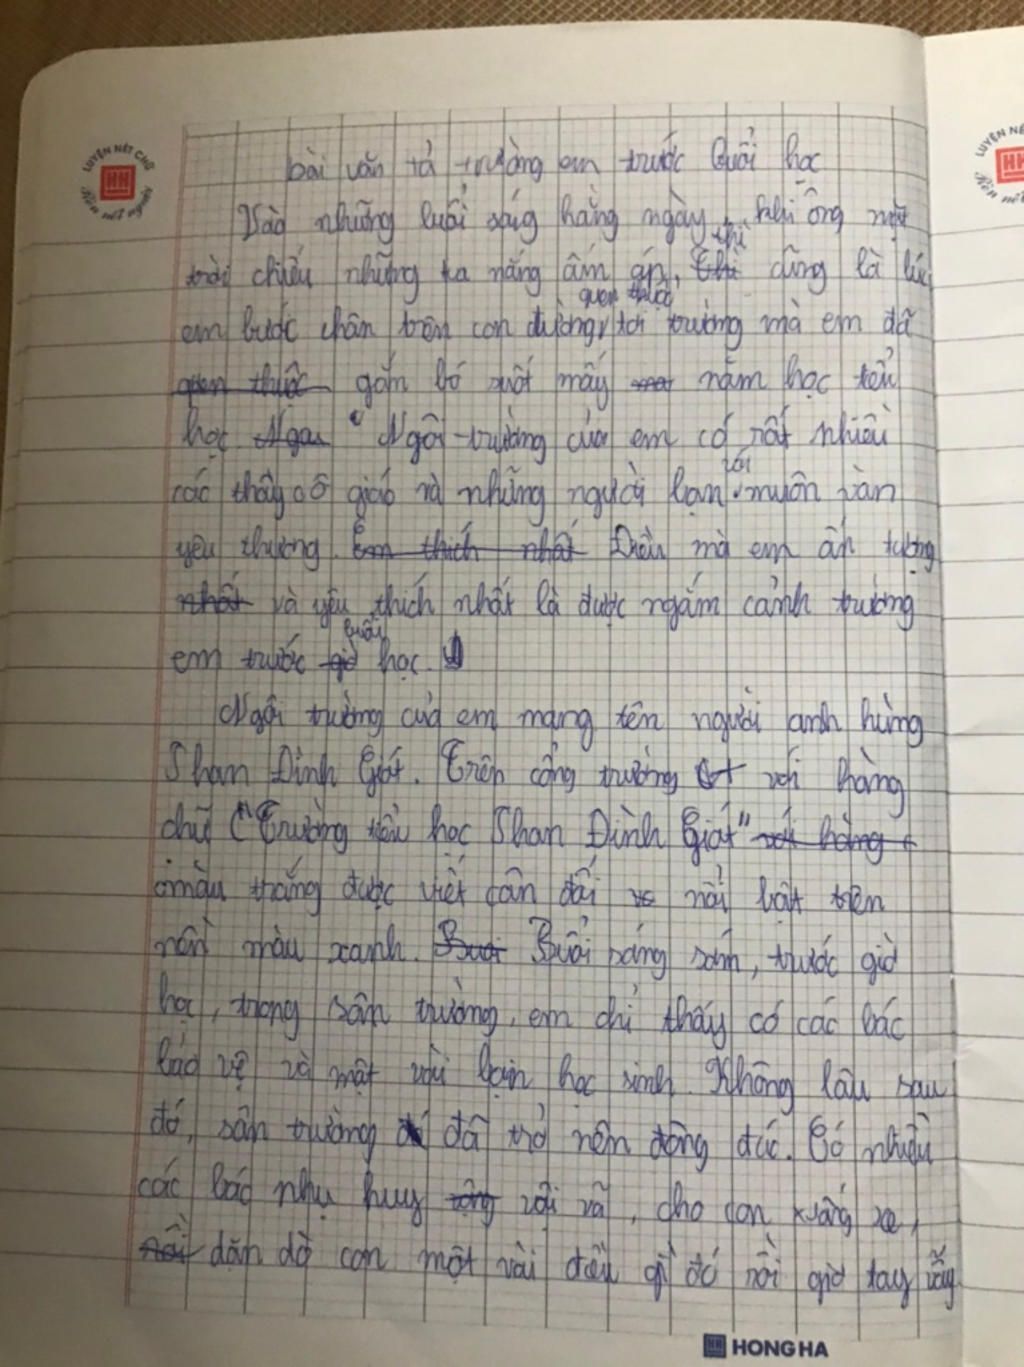 LUYỆN NÉT CHỮ
HH
Rèn nết người
bài văn tả trường em trước buổi học
Vào những buổi sáng hằng ngày, khi ông mặt
trời chiếu những tia nắng ấm áp, thì cũng là lúc
em bước chân trên con đường quen thuộc tới trường mà em đã
quen thuộc gắn bó suốt mấy năm học tiểu
học. Ngôi trường của em có rất nhiều
các thầy cô giáo và những người bạn với muôn vàn
yêu thương. Em thích nhất Điều mà em ấn tượng
nhất và yêu thích nhất là được ngắm cảnh trường
em trước giờ buổi học.
Ngôi trường của em mang tên người anh hùng
Phan Đình Giót. Trên cổng trường với hàng
chữ ("Trường tiểu học Phan Đình Giót" với hàng
màu trắng được viết cân đối nổi bật trên
nền màu xanh. Buổi sáng sớm, trước giờ
học, trong sân trường, em chỉ thấy có các bác
bảo vệ và một vài bạn học sinh. Không lâu sau
đó, sân trường đã trở nên đông đúc. Có nhiều
các bác phụ huy vội vã, cho con xuống xe,
nói dặn dò con một vài điều gì đó rồi giơ tay vẫy
HH HONG HA